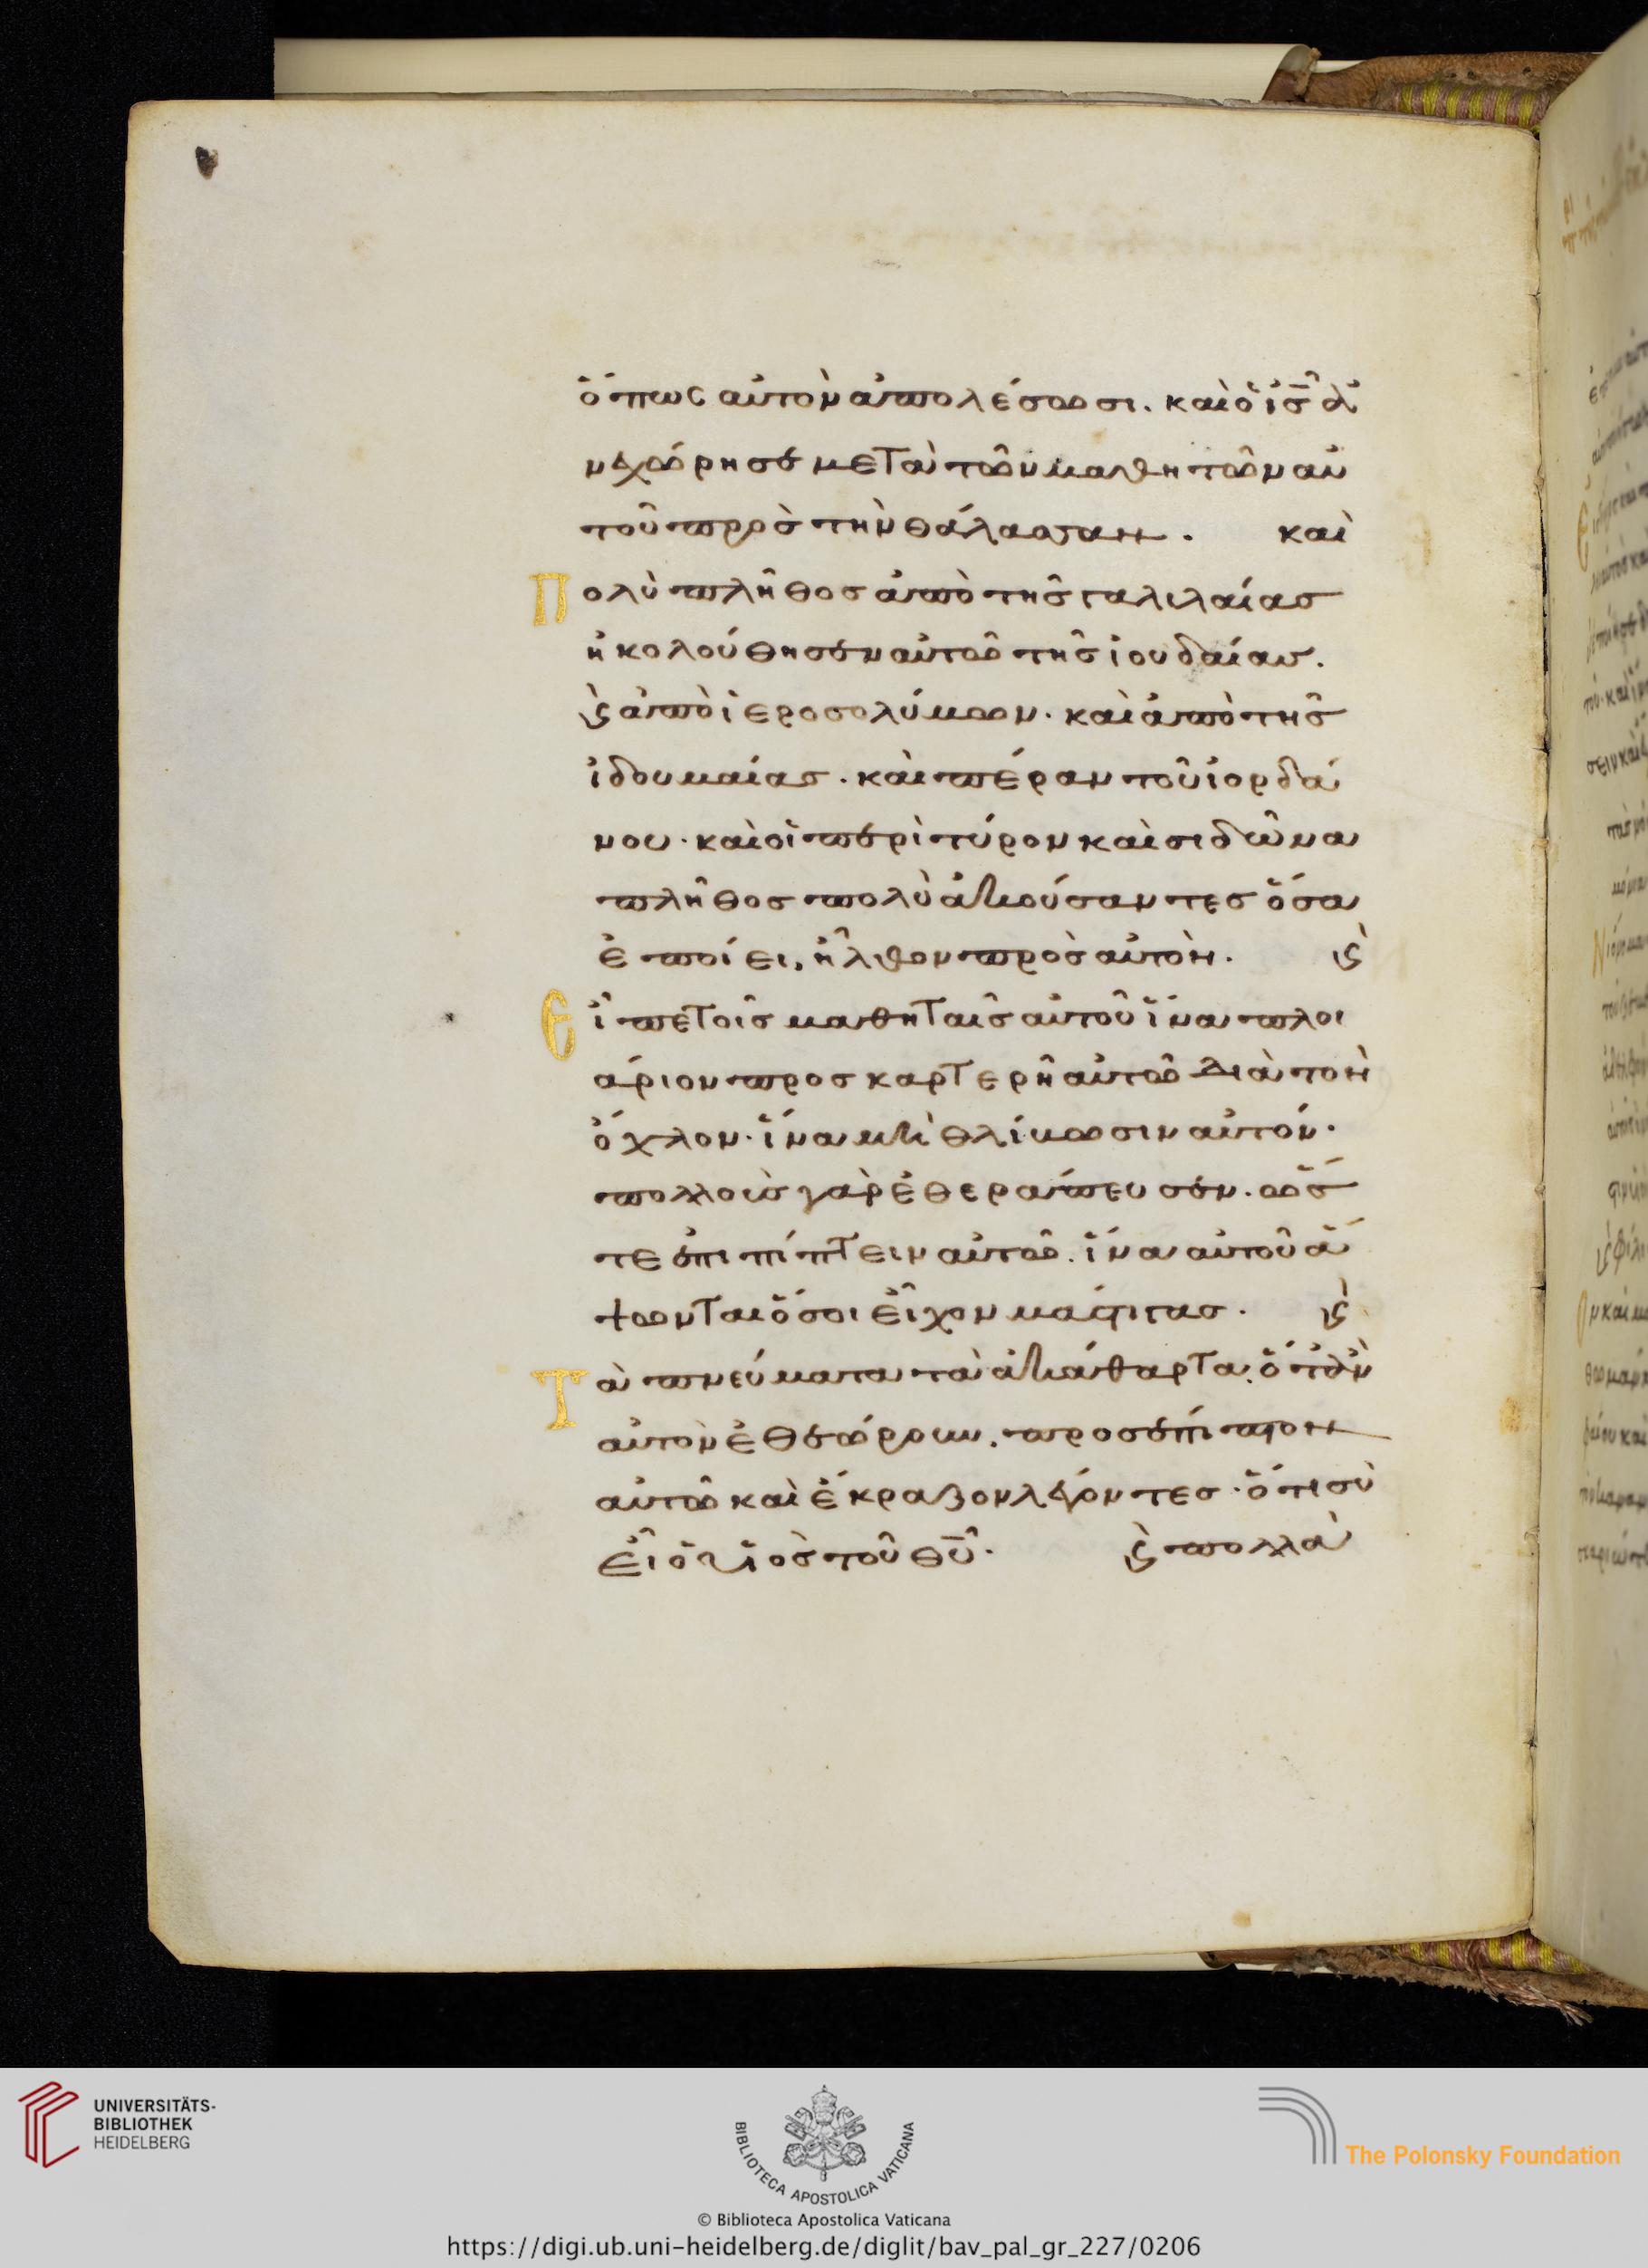 ὅπως αὐτὸν ἀπολέσωσι. καὶ ὁ ἰς̅ ἀ
νεχώρησε μετὰ τῶν μαθητῶν αὐ
τοῦ πρὸς τὴν θάλασσαν. καὶ
Πολὺ πλῆθος ἀπὸ τῆς γαλιλαίας
ἠκολούθησεν αὐτῶ τῆς ἰουδαίας.
ϗ ἀπὸ ἱεροσολύμων· καὶ ἀπὸ τῆς
ἰδουμαίας. καὶ πέραν τοῦ ἰορδά
νου· καὶ οἱ περὶ τύρον καὶ σιδῶνα
πλῆθος πολὺ ἀκούσαντες ὅσα
ἐποίει, ἦλθον πρὸς αὐτόν. ϗ
Εἶπε τοῖς μαθηταῖς αὐτοῦ ἵνα πλοι
άριον προσκαρτερῆ αὐτῶ διὰ τὸν
ὄχλον· ἵνα μὴ θλίβωσιν αὐτόν·
πολλοὺς γὰρ ἐθεράπευσεν. ὥσ
τε ἐπιπίπτειν αὐτῶ. ἵνα αὐτοῦ ἅ
ψωνται ὅσοι εἶχον μάστιγας. ϗ
Τὰ πνεύματα τὰ ἀκάθαρτα, ὅταν
αὐτὸν ἐθεώρουν, προσέπιπτον
αὐτῶ καὶ ἔκραζον λέγοντες· ὅτι σὺ
εἶ ὁ υἱὸς τοῦ θ̅υ̅· ϗ πολλὰ
UNIVERSITÄTS-
BIBLIOTHEK
HEIDELBERG
BIBLIOTECA APOSTOLICA VATICANA
The Polonsky Foundation
© Biblioteca Apostolica Vaticana
https://digi.ub.uni-heidelberg.de/diglit/bav_pal_gr_227/0206